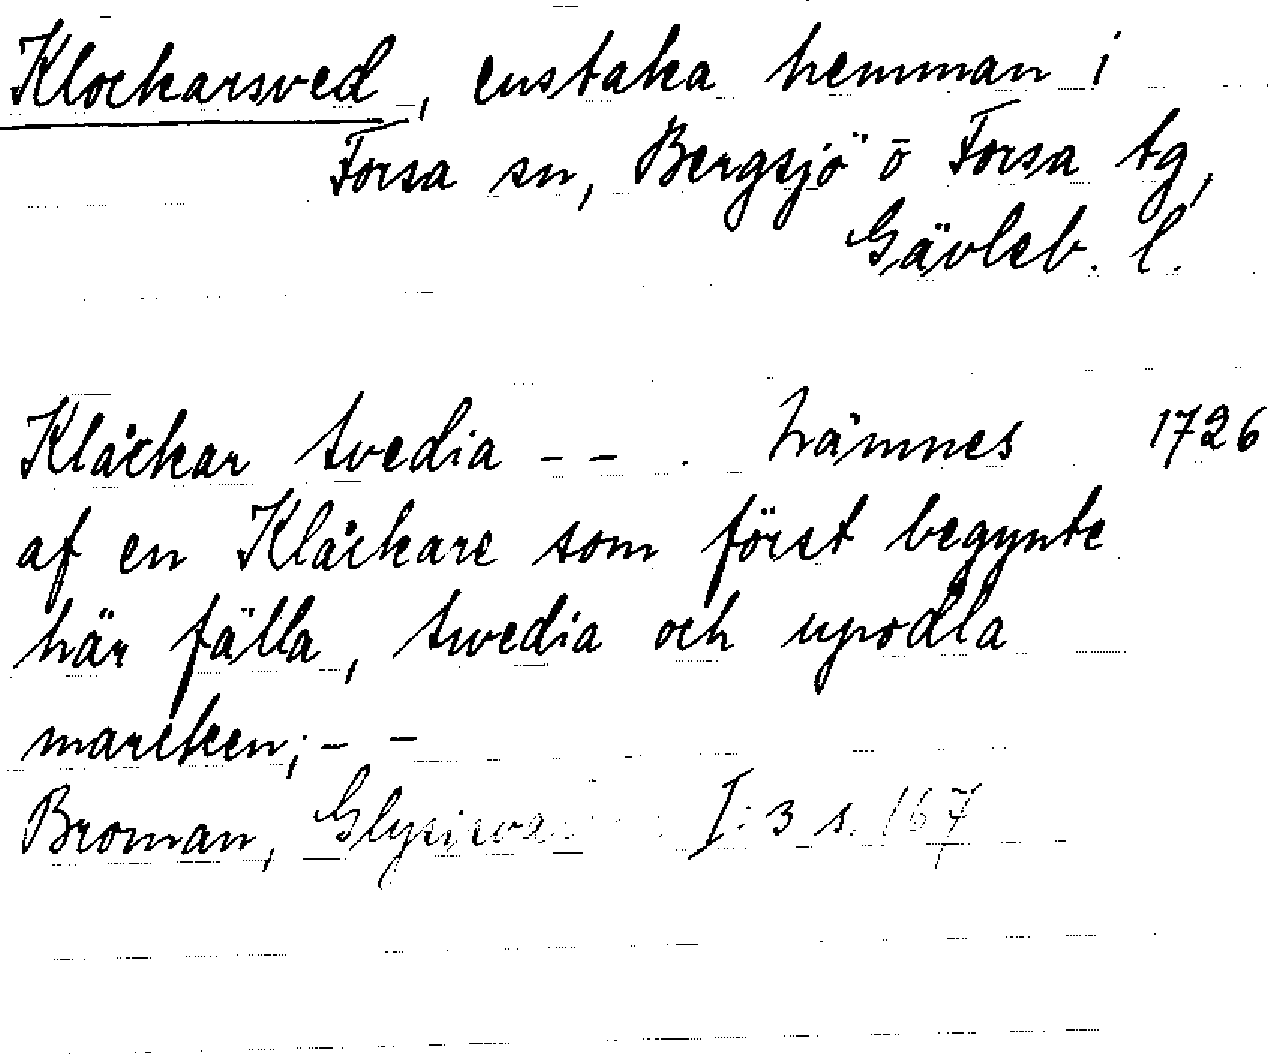 Klockarsved, enstaka hemman i
Forsa sn, Bergsjö o Forsa tg,
Gävleb. l.
Klåckar svedia - - . nämnes 1726
af en Klåckare som först begynte
här fälla, swedia och upodla
marcken; - -
Broman, Glysisva I: 3 s. 167